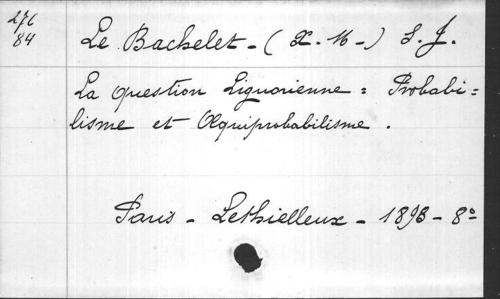 276
84
Le Bachelet - ( X. M - ) S. J.
La question Liguorienne : Probabi=
lisme et Œquiprobabilisme .
Paris - Lethielleux - 1898 - 8º